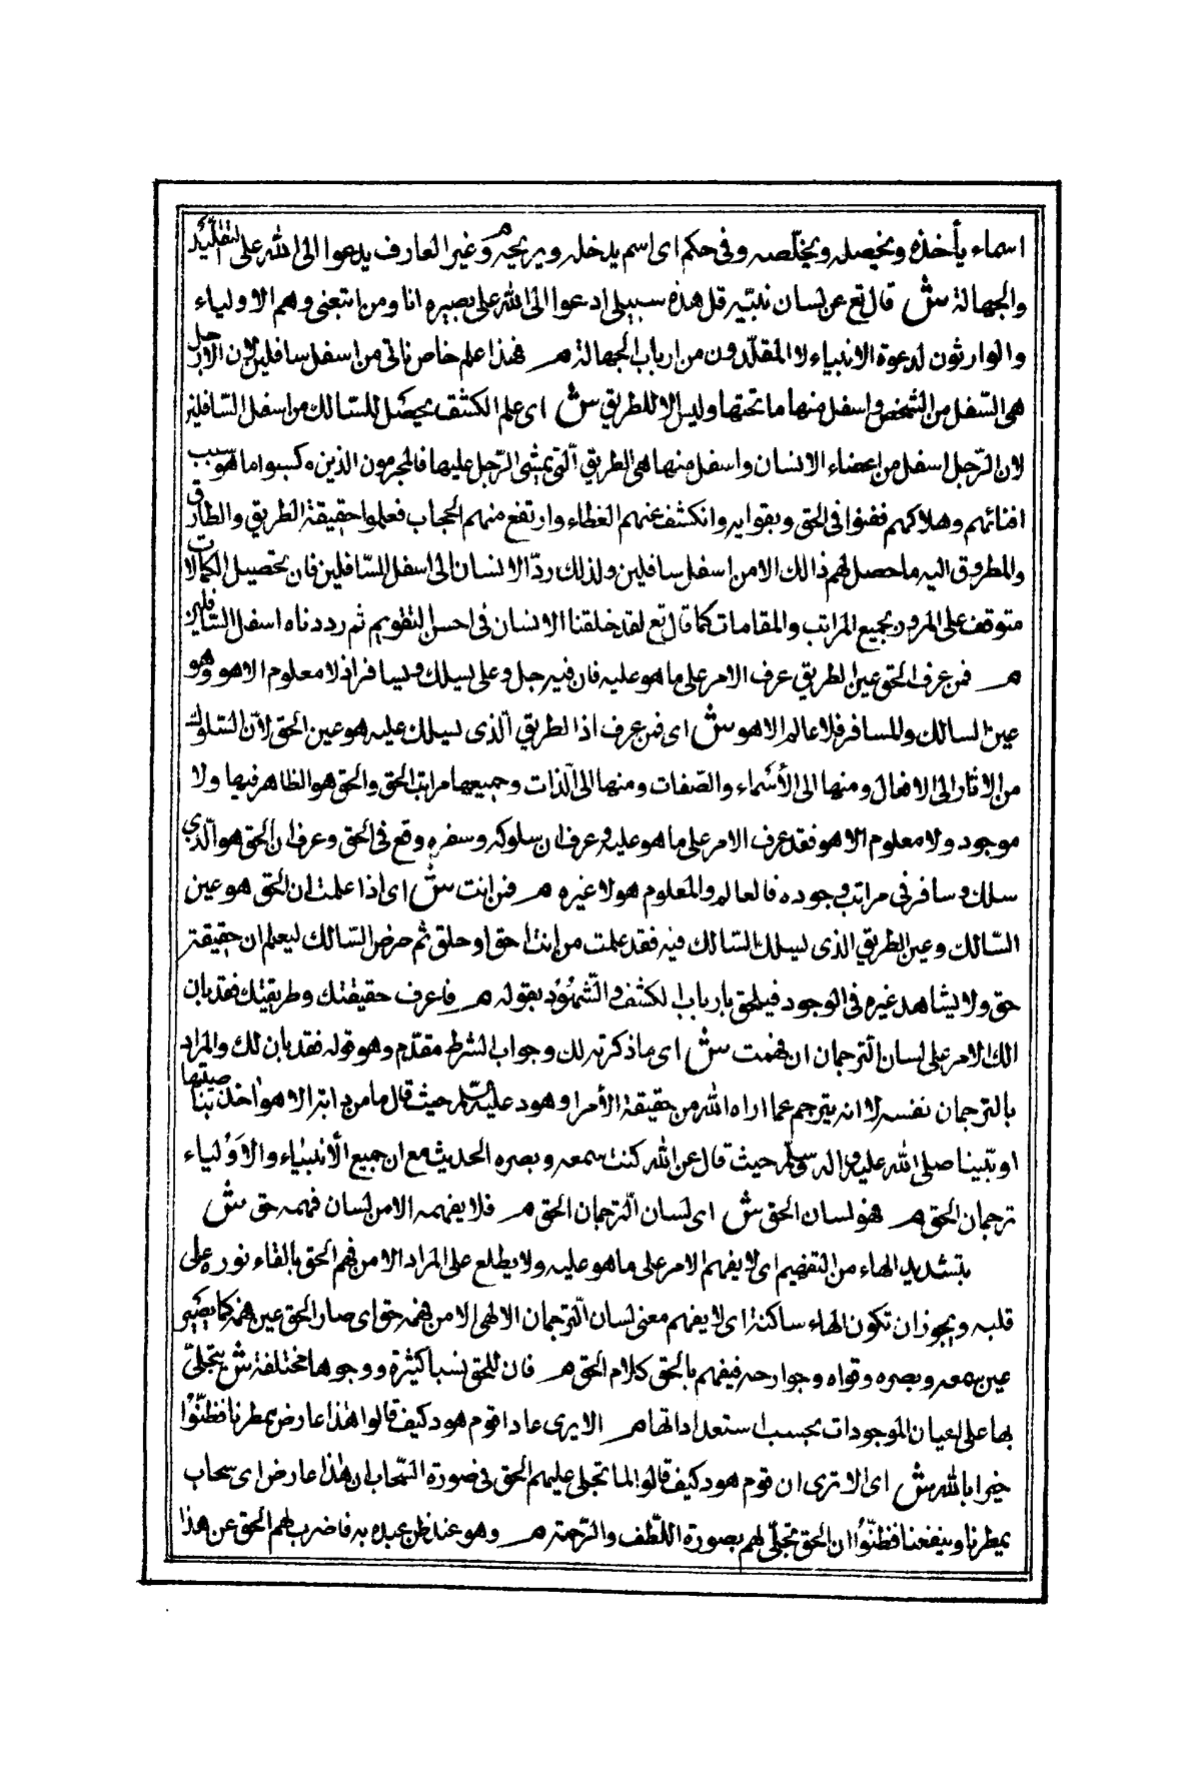 اسماء يأخذه ويحصله ويخلّصه وفى حكم اى اسم يدخله ويريحه م وغير العارف يدعوا الى الله على التقليد
والجهالة ش قال تع عن لسان نبيّه قل هذه سبيلى ادعوا الى الله على بصيرة انا ومن اتبعنى وهم الاولياء
والوارثون لدعوة الانبياء لا المقلّدون من ارباب الجهالة م فهذا علم خاص ناتى من اسفل سافلين لان الارجل
هى السّفل من الشخص واسفل منها ما تحتها وليس الا للطريق ش اى علم الكشف يحصّل للسّالك من اسفل السّافلين
لان الرّجل اسفل من اعضاء الانسان واسفل منها هى الطريق الّتى يمشى الرّجل عليها فالمجرمون الذين كسبوا ما هو سبب
افنائهم وهلاكهم ففنوا فى الحق وبقوا به وانكشف عنهم الغطاء وارتفع منهم الحجاب فعلموا حقيقة الطريق والطارق
والمطروق اليه ما حصل لهم ذالك الا من اسفل سافلين ولذلك ردّ الانسان الى اسفل السّافلين فان تحصيل الكمالات
متوقف على المرور بجميع المراتب والمقامات كما قال تع لقد خلقنا الانسان فى احسن التقويم ثم رددناه اسفل السّافلين
م فمن عرف الحق عين الطريق عرف الامر على ما هو عليه فان فيه جل وعلى يسلك ويسافر اذ لا معلوم الا هو وهو
عين السالك والمسافر فلا عالم الا هو ش اى فمن عرف اذ الطريق الّذى يسلك عليه هو عين الحق لانّ السّلوك
من الاثار الى الافعال ومنها الى الأسماء والصّفات ومنها الى الّذات وجميعها مراتب الحق والحق هو الظاهر فيها ولا
موجود ولا معلوم الا هو فقد عرف الامر على ما هو عليه وعرف ان سلوكه وسفره وقع فى الحق وعرف ان الحق هو الّذي
سلك وسافر فى مراتب وجوده فالعالم والمعلوم هو لا غيره م فمن انت ش اى اذا علمت ان الحق هو عين
السّالك وعين الطريق الذى يسلك السّالك فيه فقد علمت من انت احق او خلق ثم حرض السّالك ليعلم ان حقيقته
حق ولا يشاهد غيره فى الوجود فيلحق بارباب الكشف والشّهود بقوله م فاعرف حقيقتك وطريقتك فقد بان
لك الامر على لسان الترجمان ان فهمت ش اى ما ذكرته لك وجواب الشرط مقدّم وهو قوله فقد بان لك والمراد
بالترجمان نفسه لانه يترجم عما اراه الله من حقيقة الأمر او هود عليه السّلم حيث قال ما من دابّة الا هو اخذ بناصيتها
او نبّينا صلى الله عليه واله وسلم حيث قال عن الله كنت سمعه وبصره الحديث مع ان جميع الأنبياء والأولياء
ترجمان الحق م فهو لسان الحق ش اى لسان الّترجمان الحق م فلا يفهمه الا من لسان فهمه حق ش
بتشديد الهاء من التفهيم اى لا يفهم الامر على ما هو عليه ولا يطلع على المراد الا من فهم الحق بالقاء نوره على
قلبه ويجوز ان تكون الهاء ساكنة اى لا يفهم معنى لسان الّترجمان الالهى الا من فهمه حق اى صار الحق عين فهمه كما يصير
عين سمعه وبصره وقواه وجوارحه فيفهم بالحق كلام الحق م فان للحق نسبا كثيرة ووجوها مختلفة ش يتجلّى
بها على اعيان الموجودات بحسب استعداداتها م الا يرى عادا قوم هود كيف قالوا هذا عارض ممطرنا فظنّوا
خيرا بالله ش اى الا ترى ان قوم هود كيف قالوا لما تجلى عليهم الحق فى صورة السّحاب ان هذا عارض اى سحاب
يمطرنا وينفعنا فظنّوا ان الحق تجلّى لهم بصورة اللّطف والرّحمة م وهو عند ظن عبده به فاضرب لهم الحق عن هذا